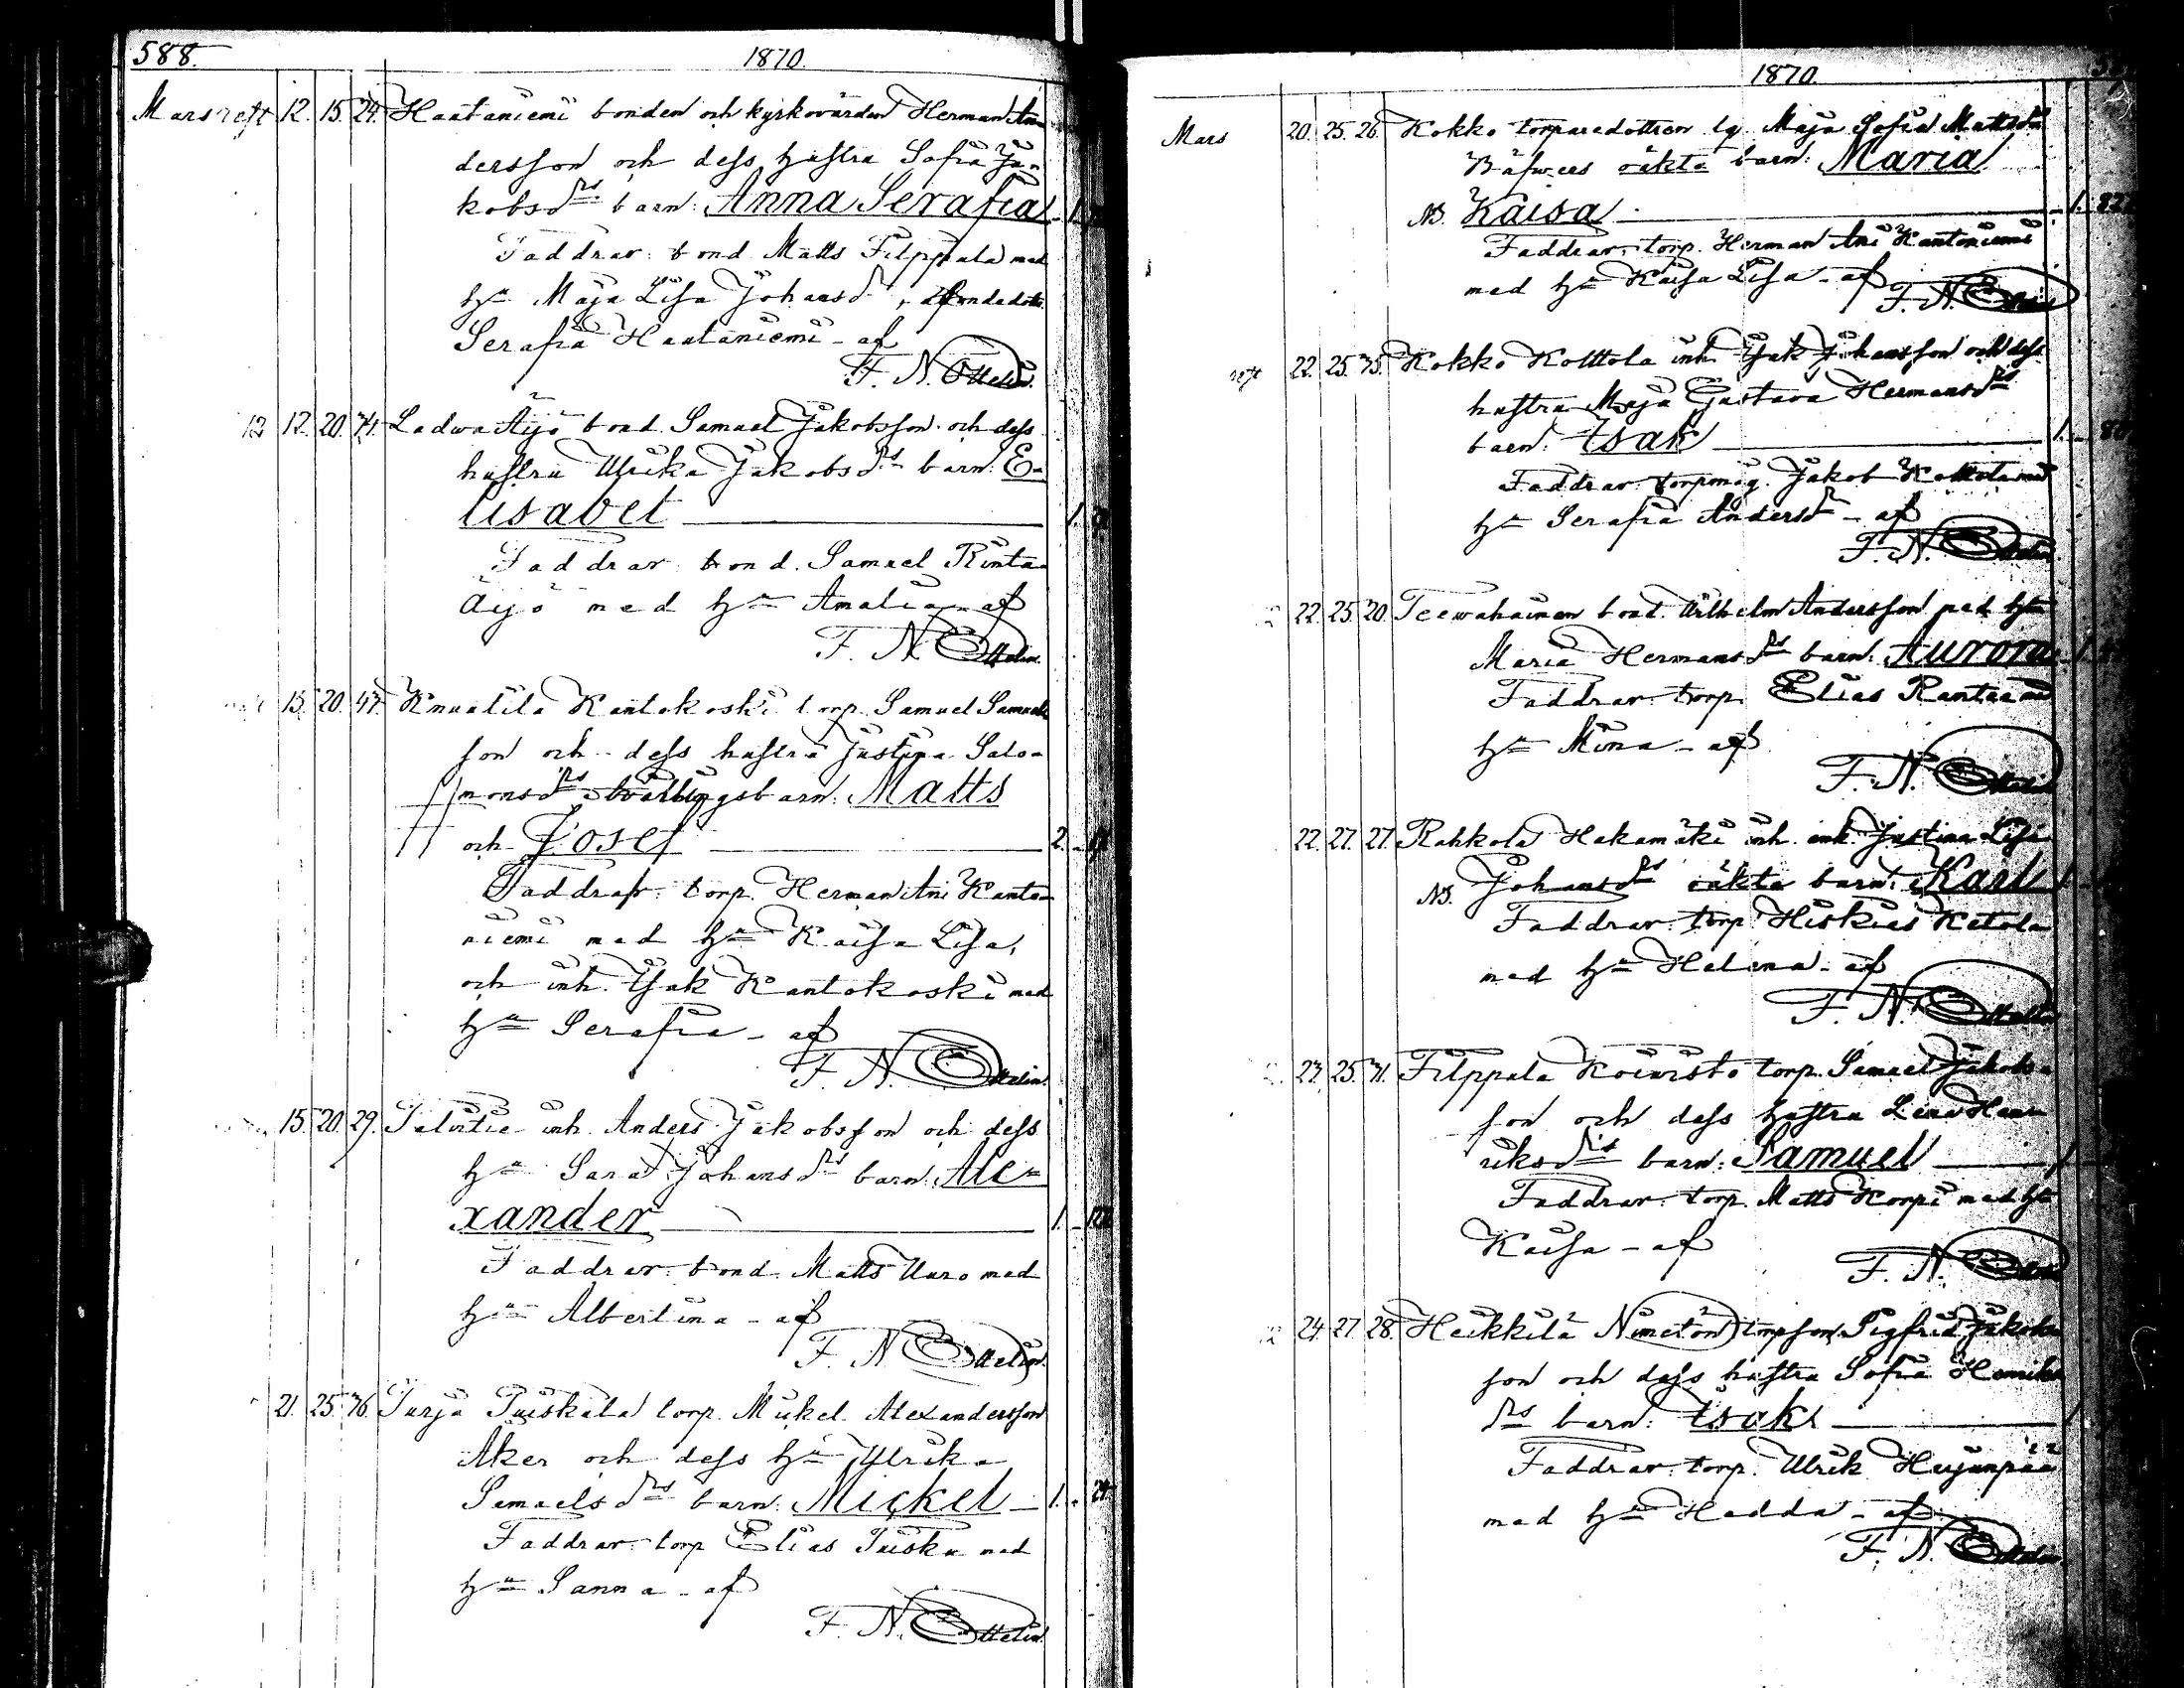 588.
1870.
Mars 12. 15. 24. Haataniemi bonden och kyrkovärden Herman An-
dersson och dess hustru Sofia Ja-
kobsdrs barn: Anna Serafia 1.
Faddrar: bond. Matts Filppula med
hu Maja Lisa Johansdr,
Serafia Haataniemi - af
F. N. Ottelin.
12. 20. 41. Ladwa Äijö bond. Samuel Jakobsson och dess
hustru Ulrika Jakobsdrs barn: E-
lisabet 1.
Faddrar: bond. Samuel Rinta-
äijö med hu Amalia - af
F. N. Ottelin.
15. 20. 47. Knuutila Kantokoski torp. Samuel Samuels
son och dess hustru Justina Salo-
monsdrs tvillingsbarn: Matts
och Josef 2.
Faddrar: torp. Herman Ani Kanto-
niemi med hu Kaisa Lisa,
och inh. Isak Kantokoski med
hu Serafia - af
F. N. Ottelin.
15. 20. 29. inh. Anders Jakobsson och dess
hu Sara Johansdrs barn: Ale-
xander 1.
Faddrar: bond. Matts Uuro med
hu Albertina - af
F. N. Ottelin.
21. 25. 76. Turja Tuiskula torp. Mickel Alexandersson
Åker och dess hu Ulrika
Samuelsdrs barn: Mickel 1.
Faddrar: torp Elias Tuisku med
hu Sanna - af
F. N. Ottelin.
1870.
Mars 20. 25. 26. Kokko torparedottren lg. Maja Sofia Mattsdr
oäkta barn: Maria
NB. Kaisa 1.
Faddrar: torp. Herman Ani Kantoniemi
med hu Kaisa Lisa - af
F. N. Ottelin.
22. 25. 75. Kokko Kolttola inh. Isak Johansson och dess
hustru Maja Gustava Hermansdrs
barn: Isak 1.
Faddrar: torpmåg. Jakob Kolttola med
hu Serafia Andersdr - af
F. N. Ottelin.
22. 25. 20. Teewahainen bond. Wilhelm Andersson med hu
Maria Hermansdrs barn: Aurora 1.
Faddrar: torp. Elias Rantaa med
hu Mina - af
F. N. Ottelin.
22. 27. 27. Rahkola Hakamäki inh. enk. Justina Lisa
NB. Johansdrs oäkta barn: Karl 1.
Faddrar: torp. Hiskias Ketola
med hu Helena - af
F. N. Ottelin.
23. 25. 71. Filppula Koivisto torp. Samuel Jakobs-
son och dess hustru Lena Hen-
riksdrs barn: Samuel 1.
Faddrar: torp. Matts Korpi med hu
Kaisa - af
F. N. Ottelin.
24. 27. 28. Heikkilä Nimetön torpson Sigfrid Jakobs
son och dess hustru Sofia Henriks
drs barn: Isak
Faddrar: torp. Ulrik Huijanpää
med hu Hedda - af
F. N. Ottelin.